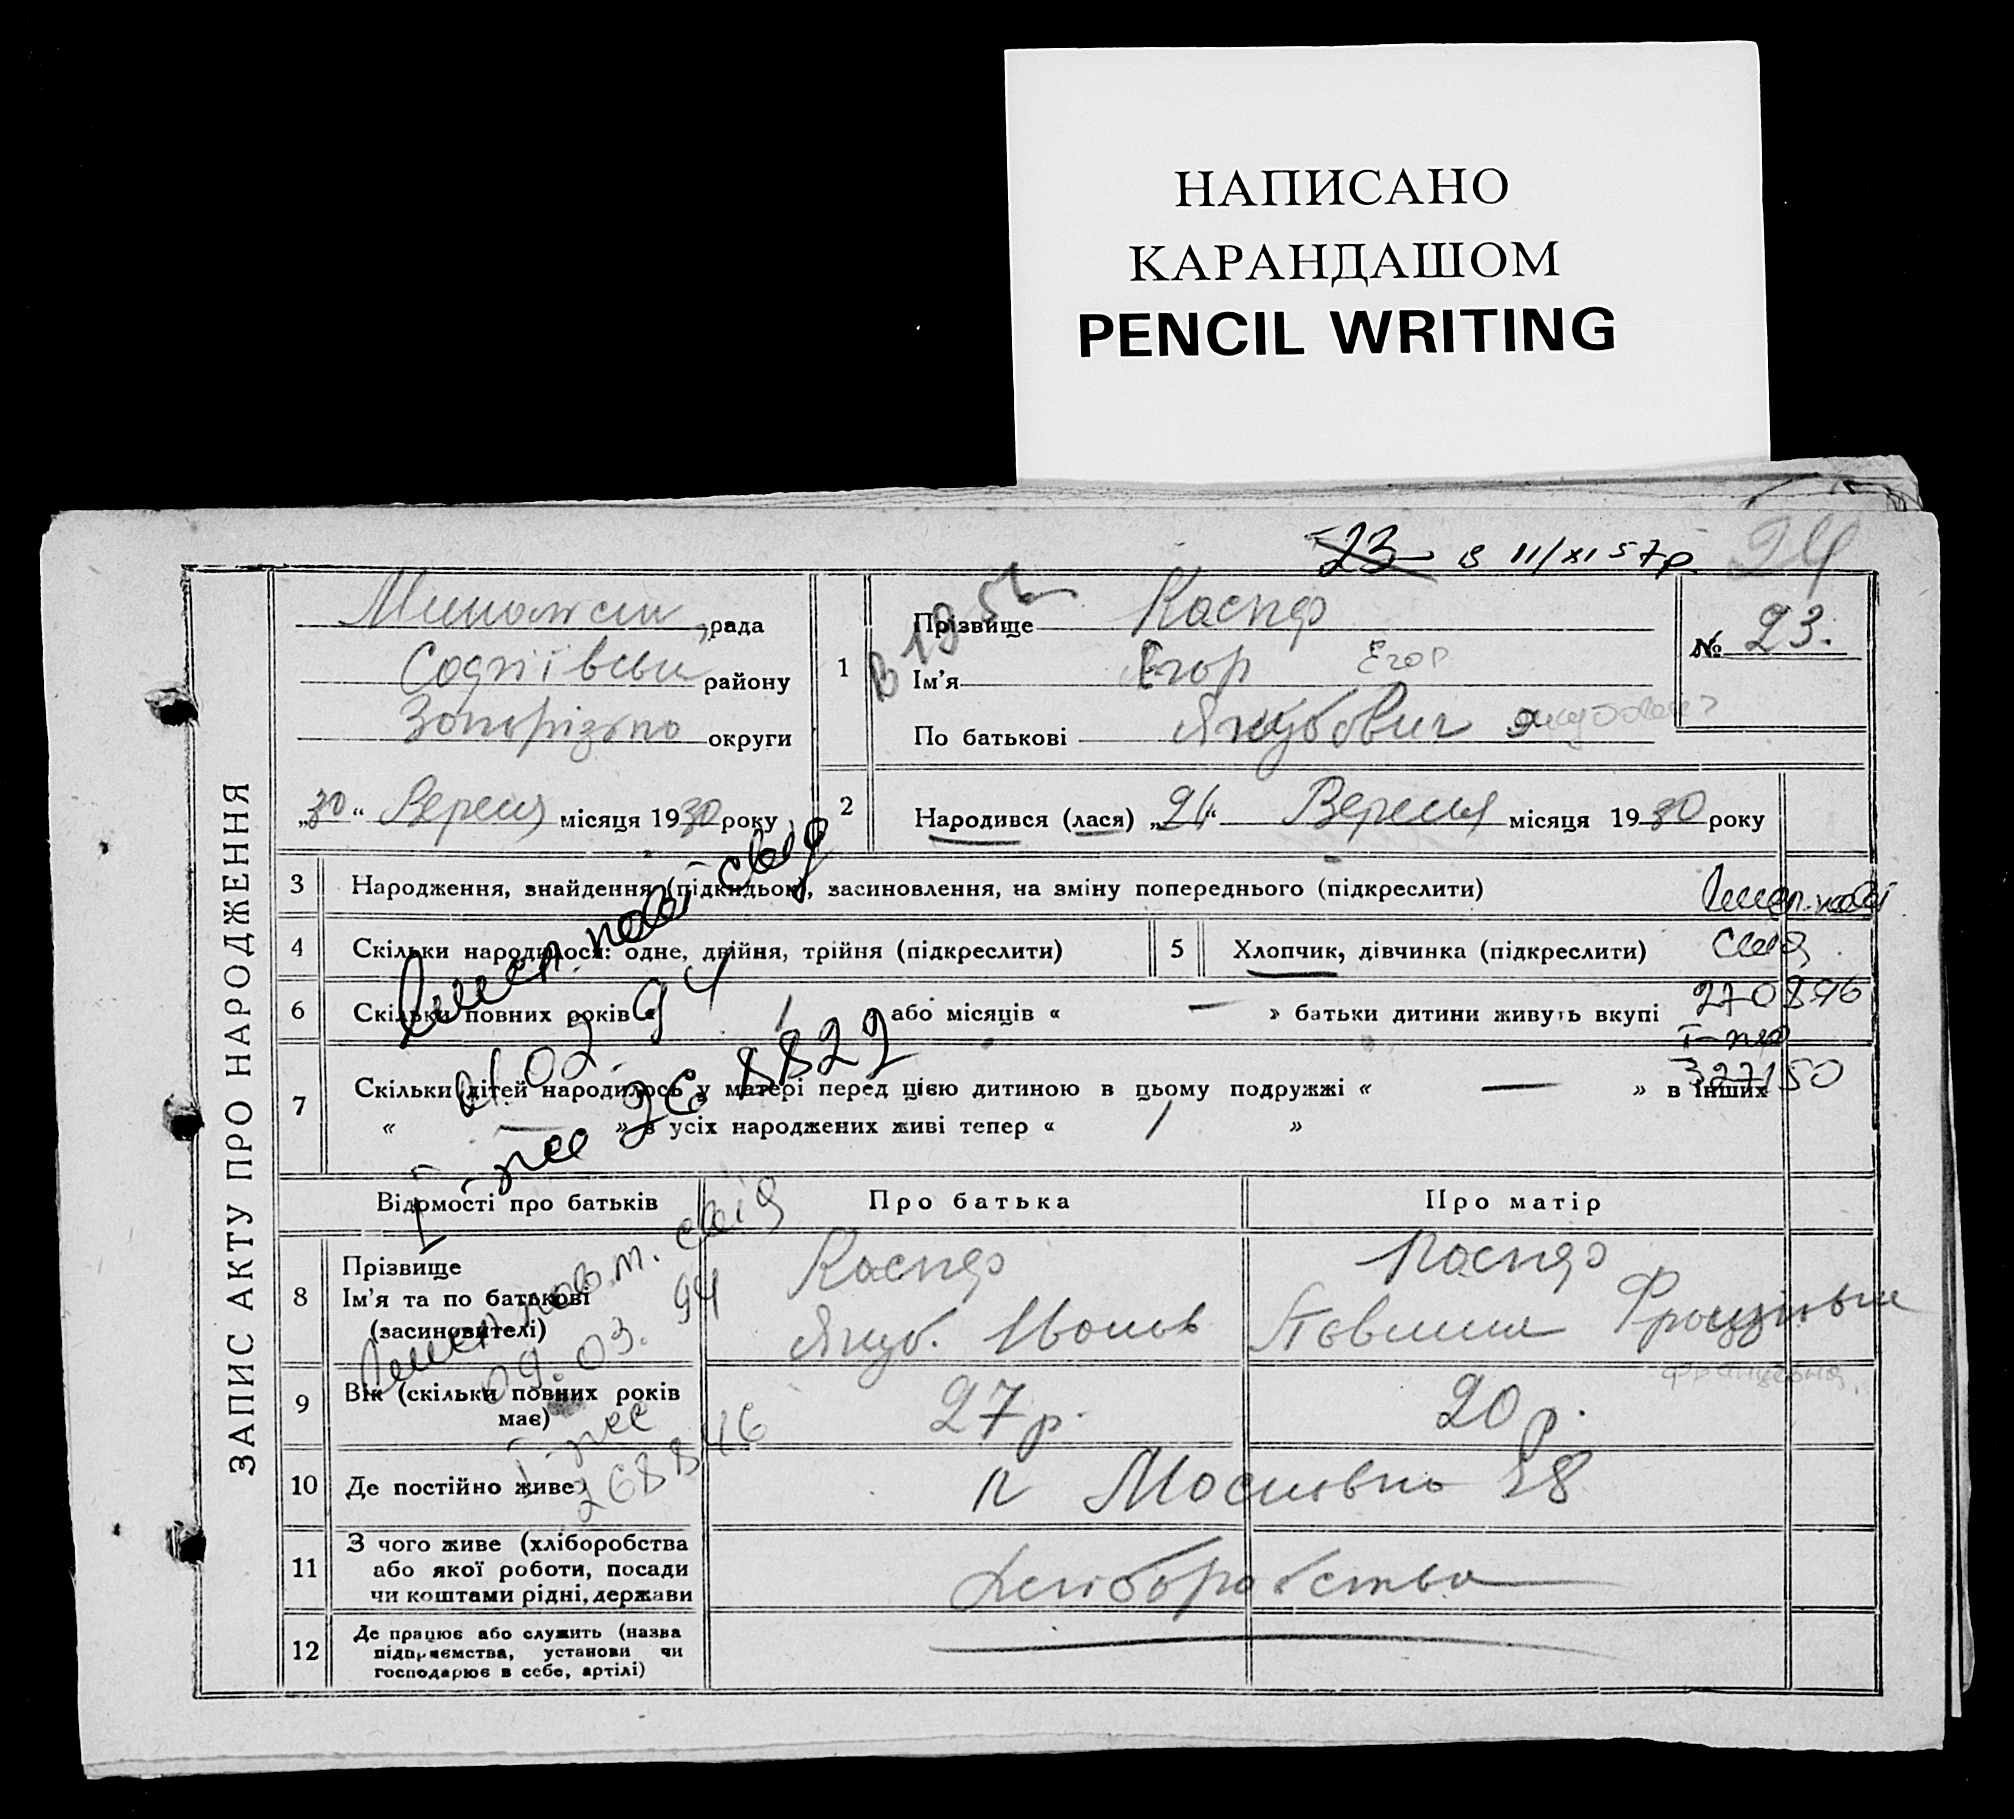 НАПИСАНО
КАРАНДАШОМ
PENCIL WRITING
23 в 11/XI 57р 24
ЗАПИС АКТУ ПРО НАРОДЖЕННЯ
рада
району
Запорізько округи
„30“ Вересня місяця 1930 року
1 Прізвище Каспер
Ім'я Егор Егор
По батькові Якубович
№ 23.
2 Народився (лася) „26“ Вересня місяця 1930 року
3 Народження, знайдення (підкидьок), засиновлення, на зміну попереднього (підкреслити)
4 Скільки народилося: одне, двійня, трійня (підкреслити)
5 Хлопчик, дівчинка (підкреслити)
6 Скільки повних років « 1 або місяців « — » батьки дитини живуть вкупі
7 Скільки дітей народилось у матері перед цією дитиною в цьому подружжі « — » в інших
« — » з усіх народжених живі тепер « 1 »
270896
327150
02.94
268822
Відомості про батьків Про батька Про матір
8 Прізвище
Ім'я та по батькові
(засиновителі)
Каспер
Якуб. Іванов
Каспер
09.03.94
268846
9 Вік (скільки повних років
має)
27 р. 20 р.
10 Де постійно живе
38
11 З чого живе (хліборобства
або якої роботи, посади
чи коштами рідні, держави
Хліборобства
12 Де працює або служить (назва
підприємства, установи чи
господарює в себе, артілі)